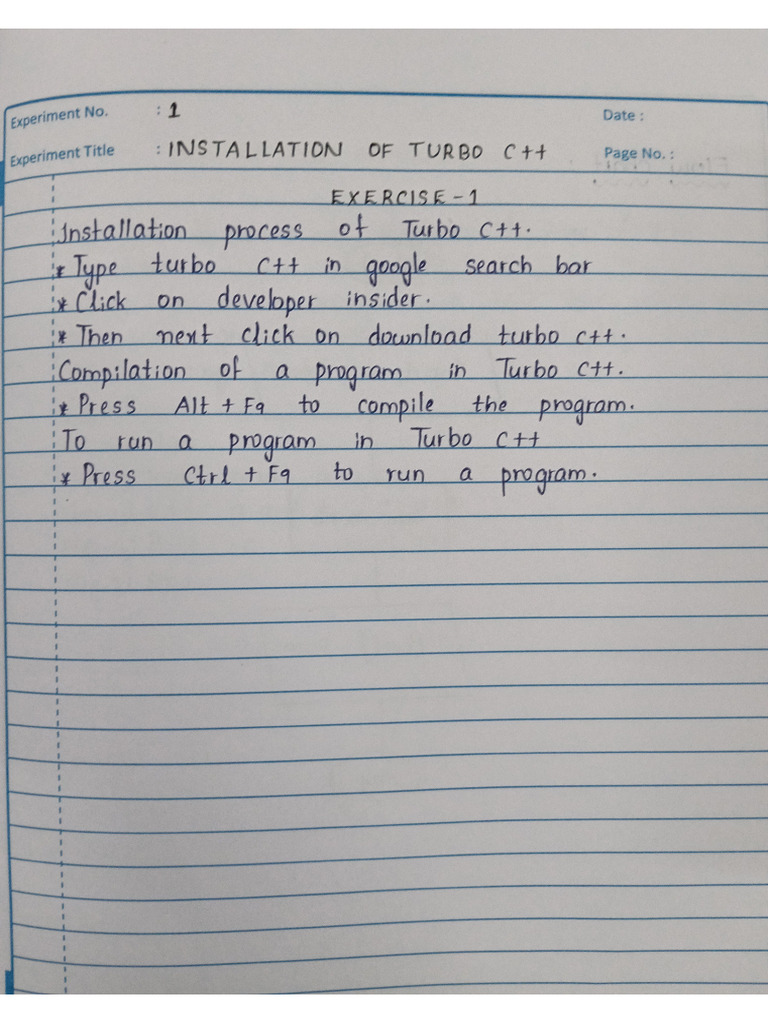 Experiment No. : 1 Date :
Experiment Title : INSTALLATION OF TURBO C++ Page No. :
EXERCISE-1
Installation process of Turbo C++.
* Type turbo C++ in google search bar
* Click on developer insider.
* Then next click on download turbo C++.
Compilation of a program in Turbo C++.
* Press Alt + F9 to compile the program.
To run a program in Turbo C++
* Press Ctrl + F9 to run a program.